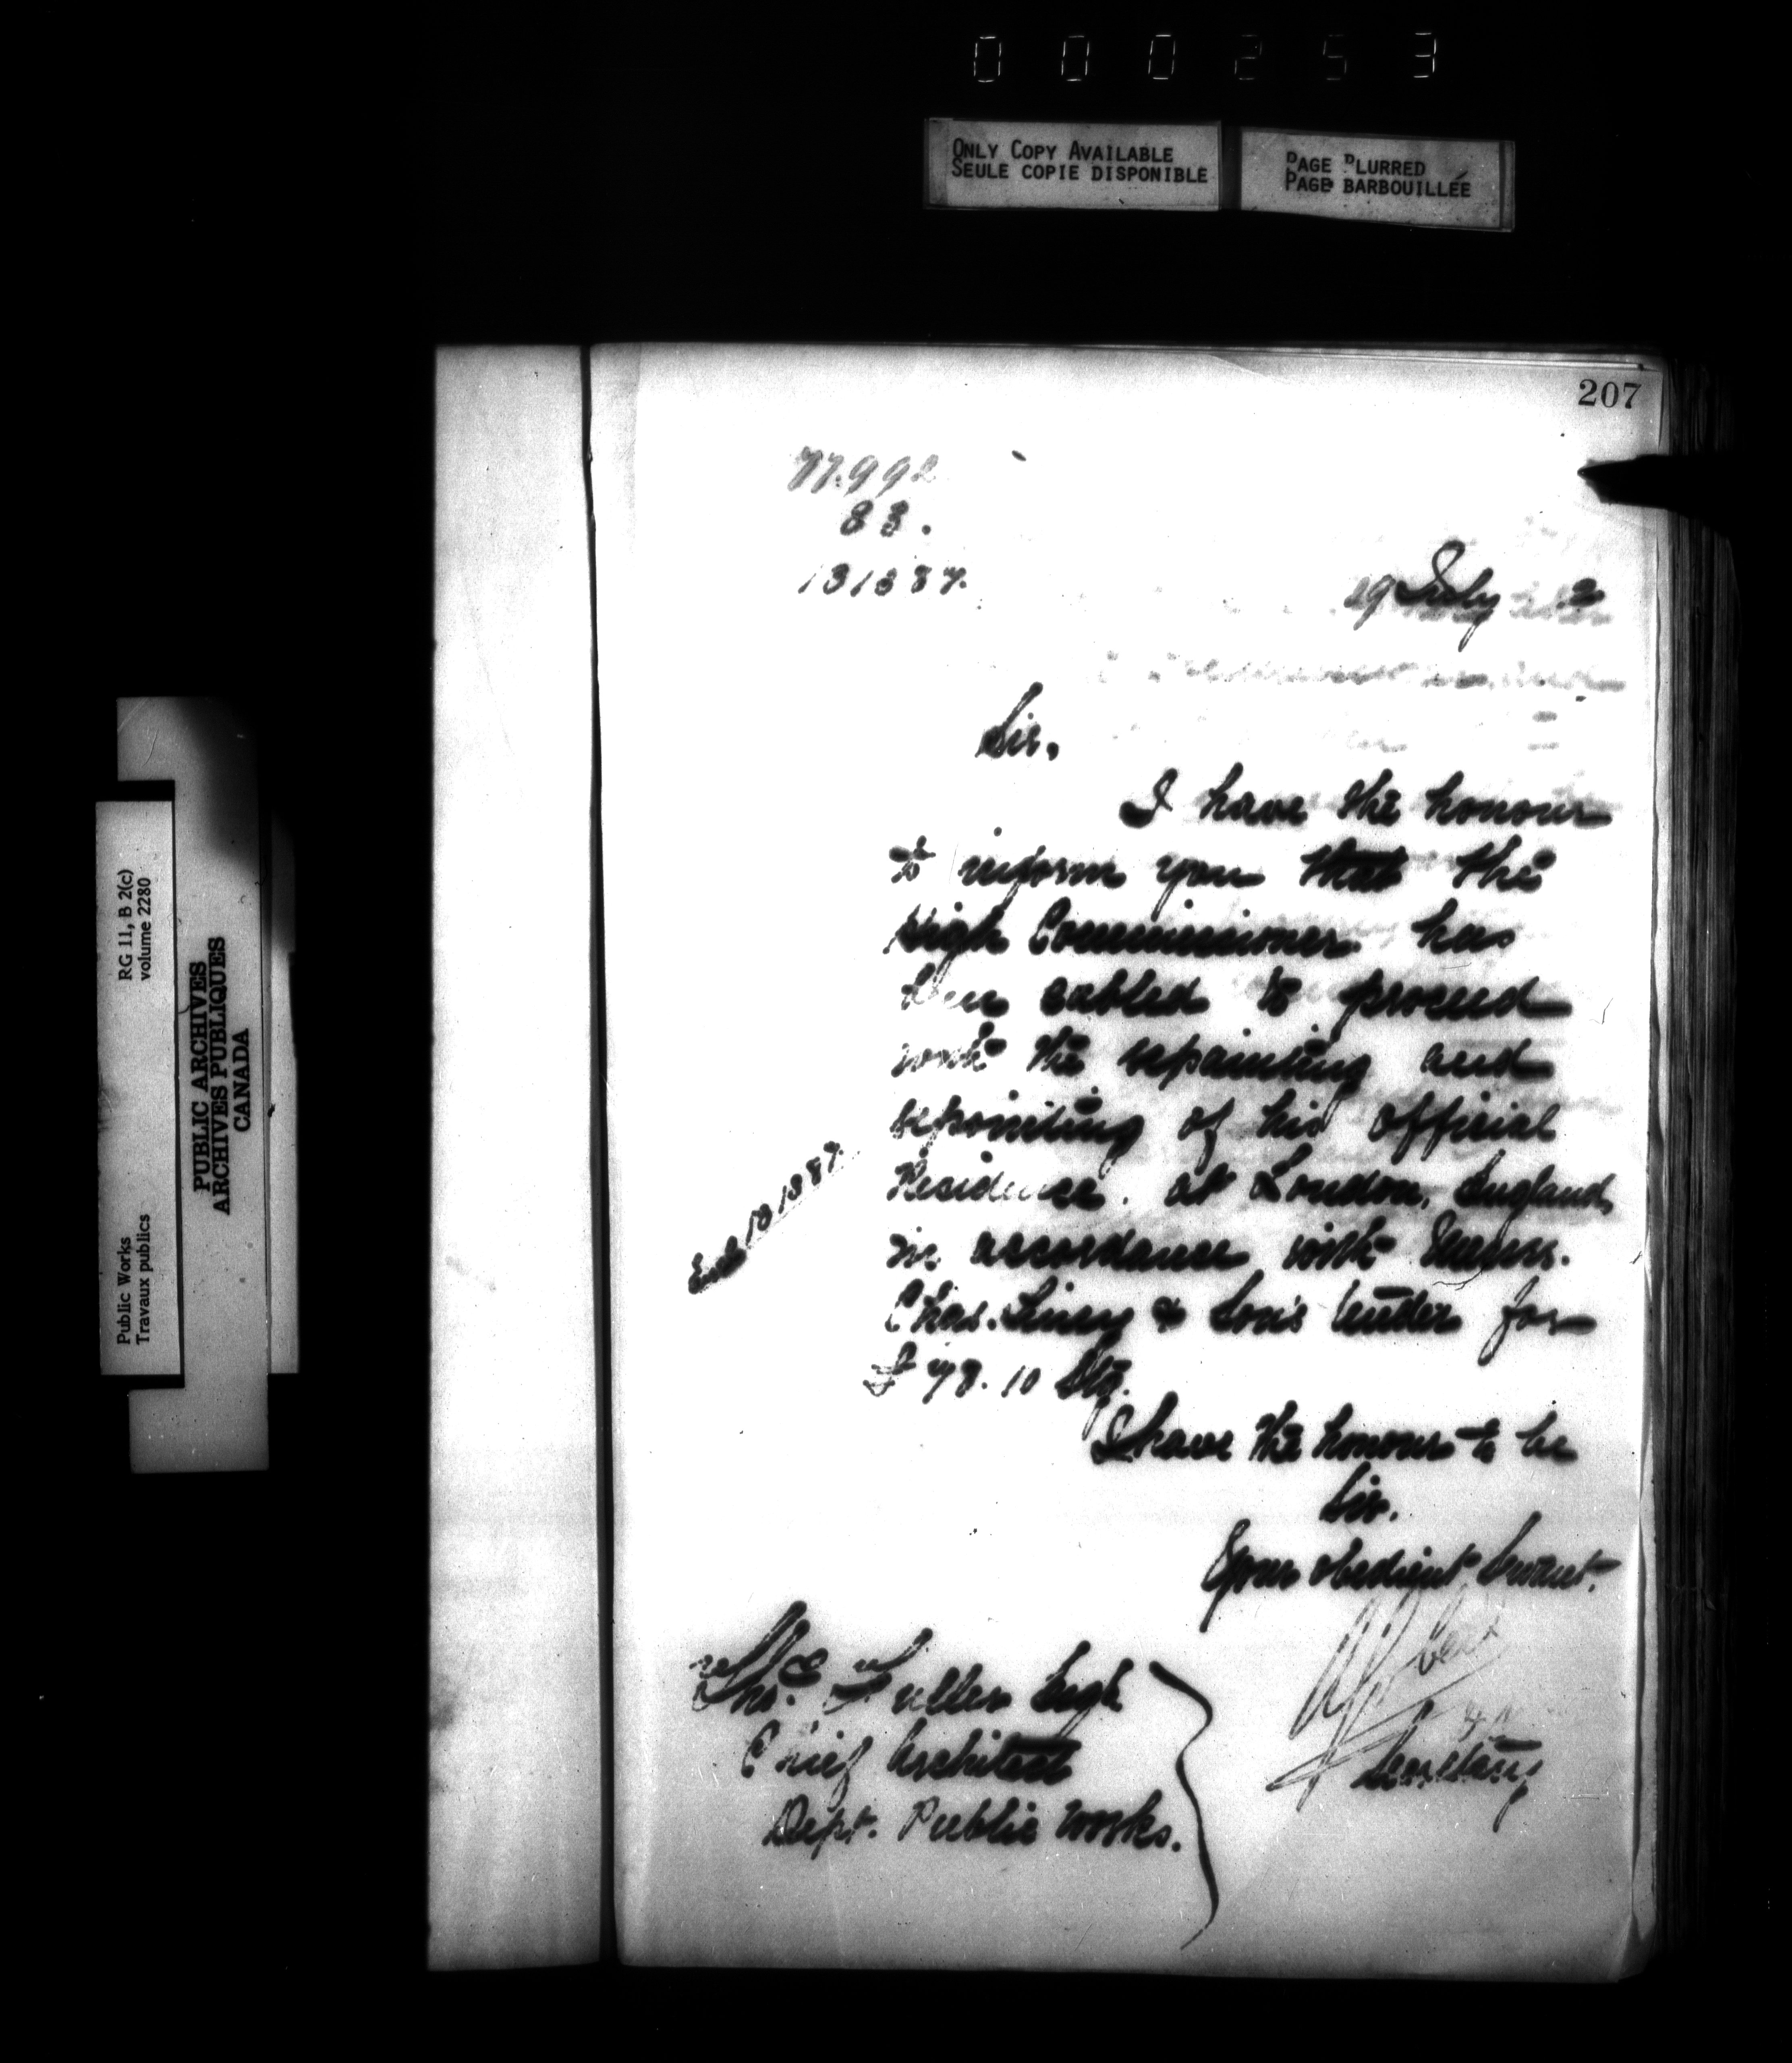 000253
ONLY COPY AVAILABLE
SEULE COPIE DISPONIBLE
PAGE BLURRED
PAGE BARBOUILLÉE
207
77.992
83.
131387.
29 July 2
Sir,
I have the honour
to inform you that the
High Commissioner has
been cabled to proceed
with the repainting and
repointing of his official
Residence. at London, England,
in accordance with Messrs.
Chas. & Son's tender for
£ 78. 10 Stg.
I have the honour to be
Sir.
Your obedient Servant.
Secretary
Encl 131387.
Thos. Fuller Esq.
Chief Architect
Dept. Public Works.
RG 11, B 2(c)
volume 2280
Public Works
Travaux publics
PUBLIC ARCHIVES
ARCHIVES PUBLIQUES
CANADA